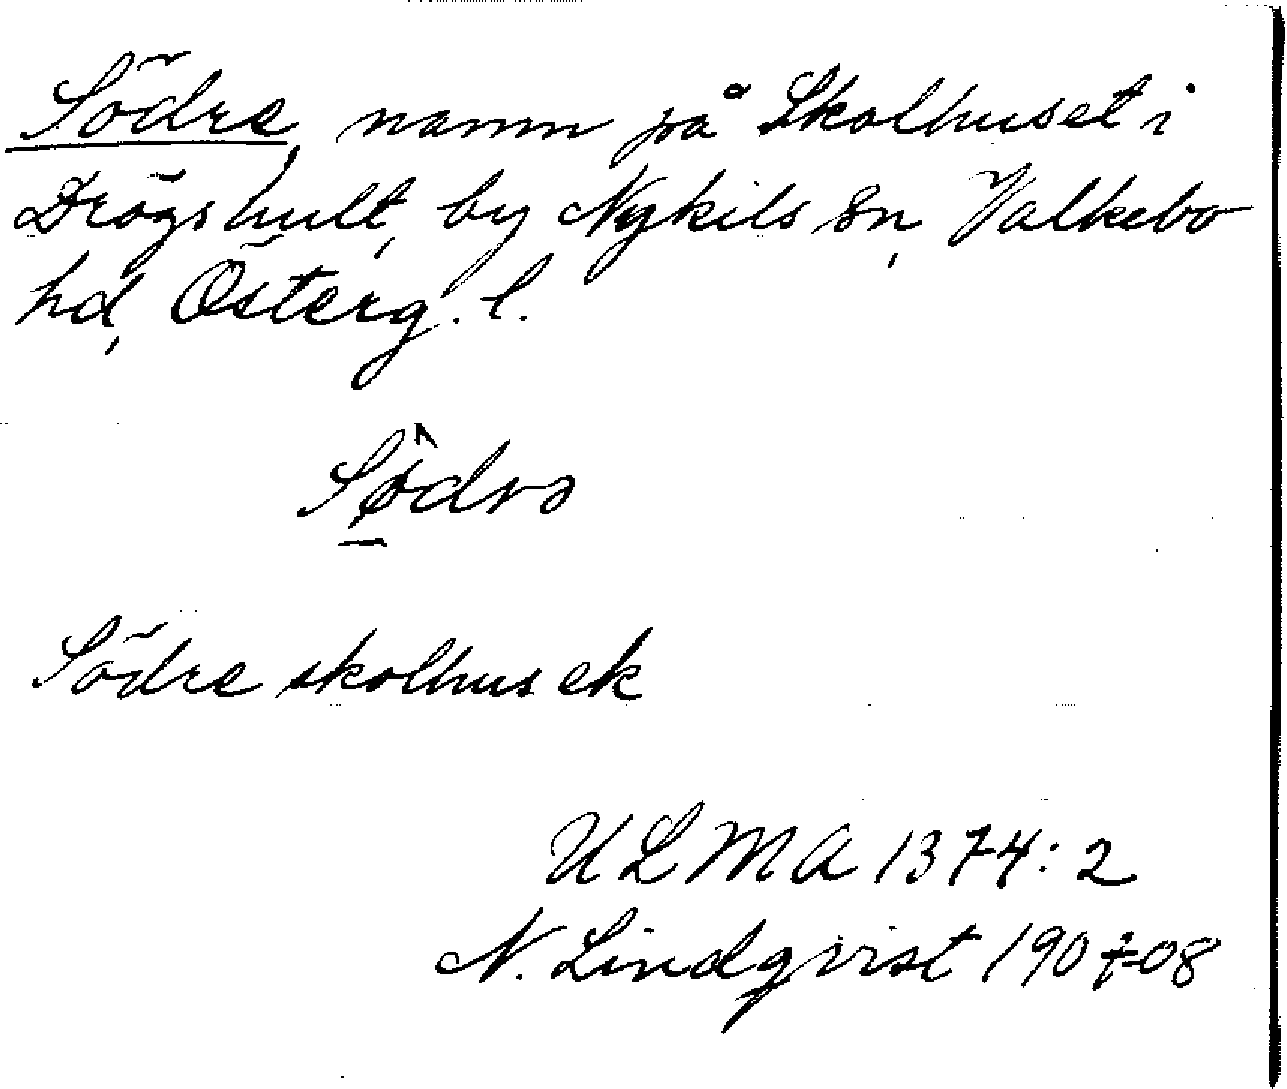 Södre, namn på Skolhuset i
Drögshult, by Nykils sn, Valkebo
hd, Österg. l.
Sø̂drə
Södre skolhus ek
ULMA 1374:2
N. Lindqvist 1907-08